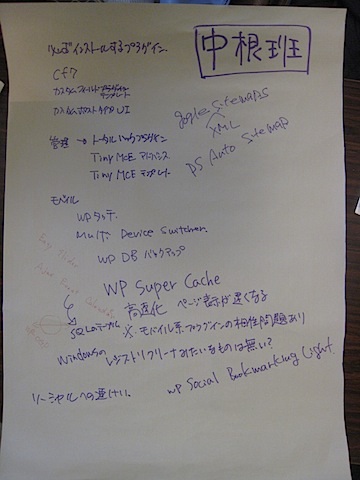 中根班
必ずインストールするプラグイン
CF7
カスタムフィールド テンプレート
カスタムポストタイプ UI
google Sitemaps
XML
PS Auto Sitemap
管理 → トータルバックプラグイン
Tiny MCE アドバンス
Tiny MCE テンプレート
モバイル
WPタッチ.
Multi Device Switcher.
WP DB バックアップ
WP Super Cache
高速化 ページ表示が速くなる
※モバイル系プラグインの相性問題あり
SQLのテーブル
Windowsの レジストリクリーナみたいなものは無い?
ソーシャルへの連けい.
WP Social Bookmarking Light